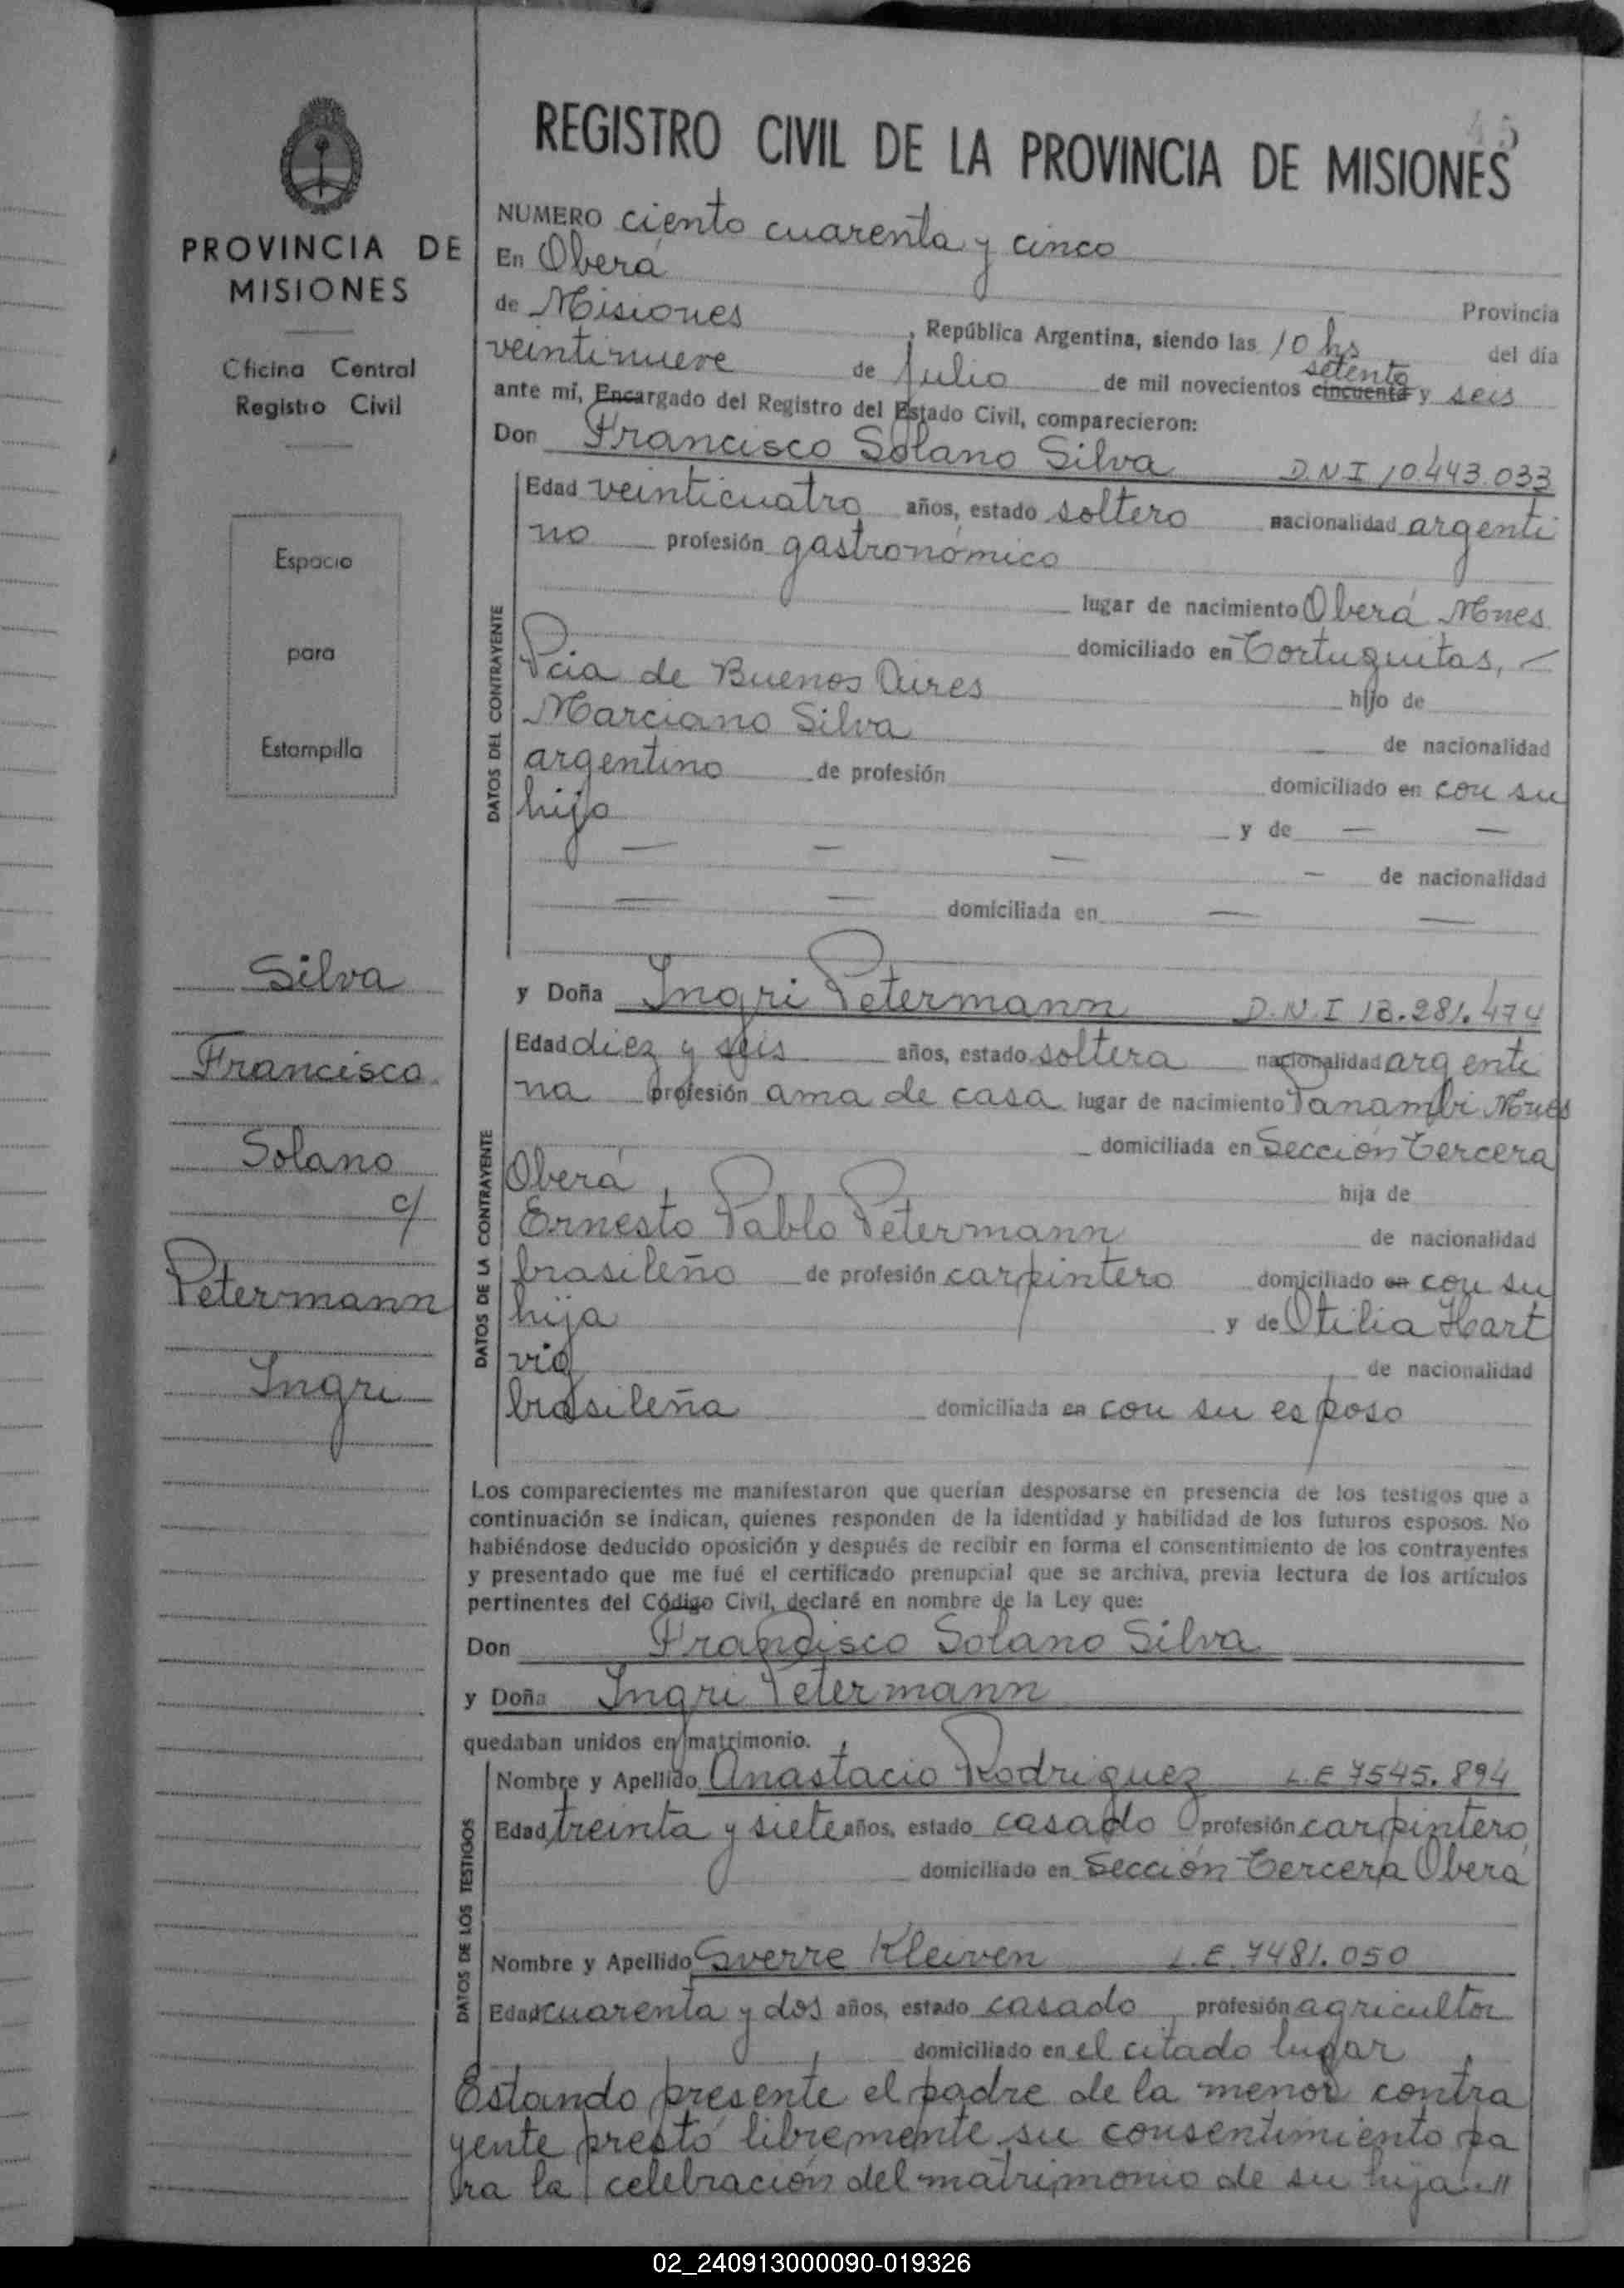 45
REGISTRO CIVIL DE LA PROVINCIA DE MISIONES
PROVINCIA DE
MISIONES
Oficina Central
Registro Civil
Espacio
para
Estampilla
Silva
Francisco
Solano
c/
Petermann
Ingri
NUMERO ciento cuarenta y cinco
En Oberá
Provincia
de Misiones, República Argentina, siendo las 10 hs del día
veintinueve de Julio de mil novecientos cincuenta setenta y seis
ante mí, Encargado del Registro del Estado Civil, comparecieron:
Don Francisco Solano Silva D.N.I 10.443.033
DATOS DEL CONTRAYENTE
Edad veinticuatro años, estado soltero nacionalidad argenti
no profesión gastronómico
lugar de nacimiento Oberá Mnes
domiciliado en Tortuguitas, -
Pcia de Buenos Aires hijo de
Marciano Silva de nacionalidad
argentino de profesión domiciliado en con su
hijo y de — —
— — — — de nacionalidad
— — domiciliada en — —
y Doña Ingri Petermann D.N.I 13.281.474
DATOS DE LA CONTRAYENTE
Edad diez y seis años, estado soltera nacionalidad argenti
na profesión ama de casa lugar de nacimiento Panambi Mnes
domiciliada en Sección Tercera
Oberá hija de
Ernesto Pablo Petermann de nacionalidad
brasileño de profesión carpintero domiciliado en con su
hija y de Otilia Hart
vig de nacionalidad
brasileña domiciliada en con su esposo
Los comparecientes me manifestaron que querían desposarse en presencia de los testigos que a
continuación se indican, quienes responden de la identidad y habilidad de los futuros esposos. No
habiéndose deducido oposición y después de recibir en forma el consentimiento de los contrayentes
y presentado que me fué el certificado prenupcial que se archiva, previa lectura de los artículos
pertinentes del Código Civil, declaré en nombre de la Ley que:
Don Francisco Solano Silva
y Doña Ingri Petermann
quedaban unidos en matrimonio.
DATOS DE LOS TESTIGOS
Nombre y Apellido Anastacio Rodriguez L.E 7545.894
Edad treinta y siete años, estado casado profesión carpintero
domiciliado en Sección Tercera Oberá
Nombre y Apellido Sverre Kleiven L.E. 7481.050
Edad cuarenta y dos años, estado casado, profesión agricultor
domiciliado en el citado lugar
Estando presente el padre de la menor contra
yente prestó libremente su consentimiento pa
ra la celebración del matrimonio de su hija..//
02_240913000090-019326